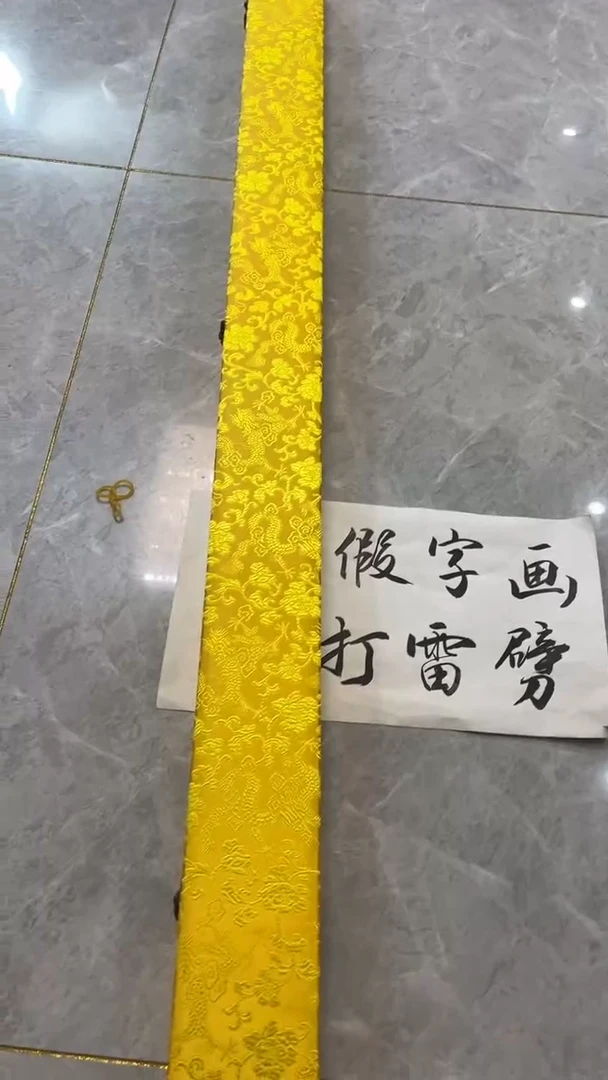 假字画
打雷劈